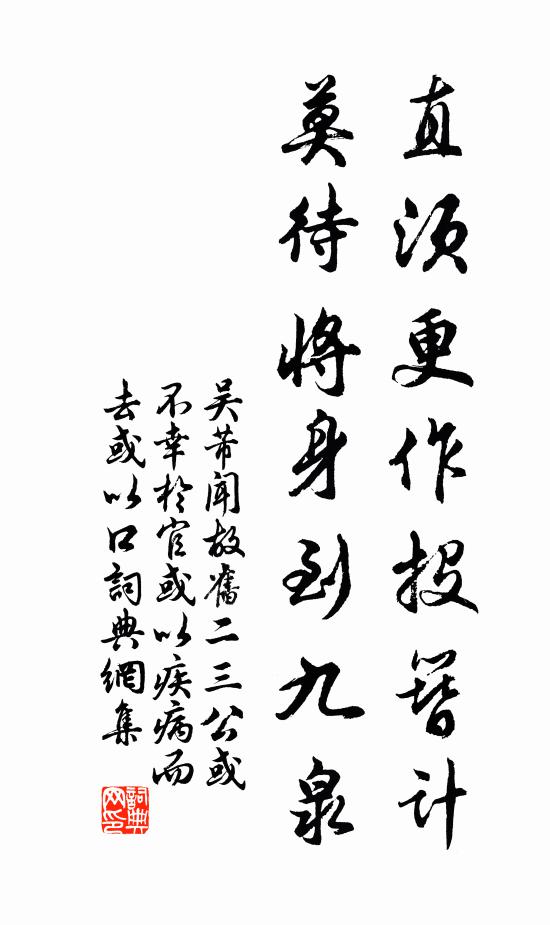 直須更作投簪計
莫待將身到九泉
吴芾聞故舊二三公或
不幸於官或以疾病而
去或以口詞典網集
詞典
网印